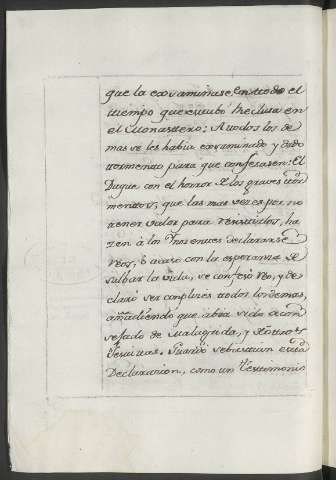 que la exsaminase en todo el
tiempo que estubo Reclusa en
el Monastero: A todos los de
mas se les habia exsaminado y dado
tormento para que confesasen: El
Duque con el horror de los graves tor
mentos, que las mas veces por no
tener valor para resistirlos, ha
zen à los Inosentes declararse
Reos, ò acaso con la esperanza de
salbar la vida, se confesò Reo, y de
clarò ser complises todos los demas,
añadiendo que abia sido acon
sejado de Malagrida, y de otros
Jesuitas. Guando se hisieron esta
Declarasion, como un testimonio